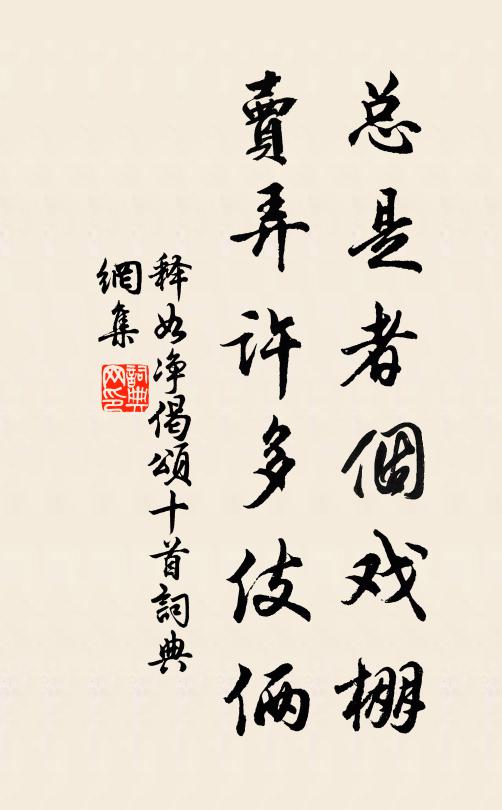 总是者個戏棚
賣弄许多伎俩
释如净偈颂十首詞典
網集
詞典
网印